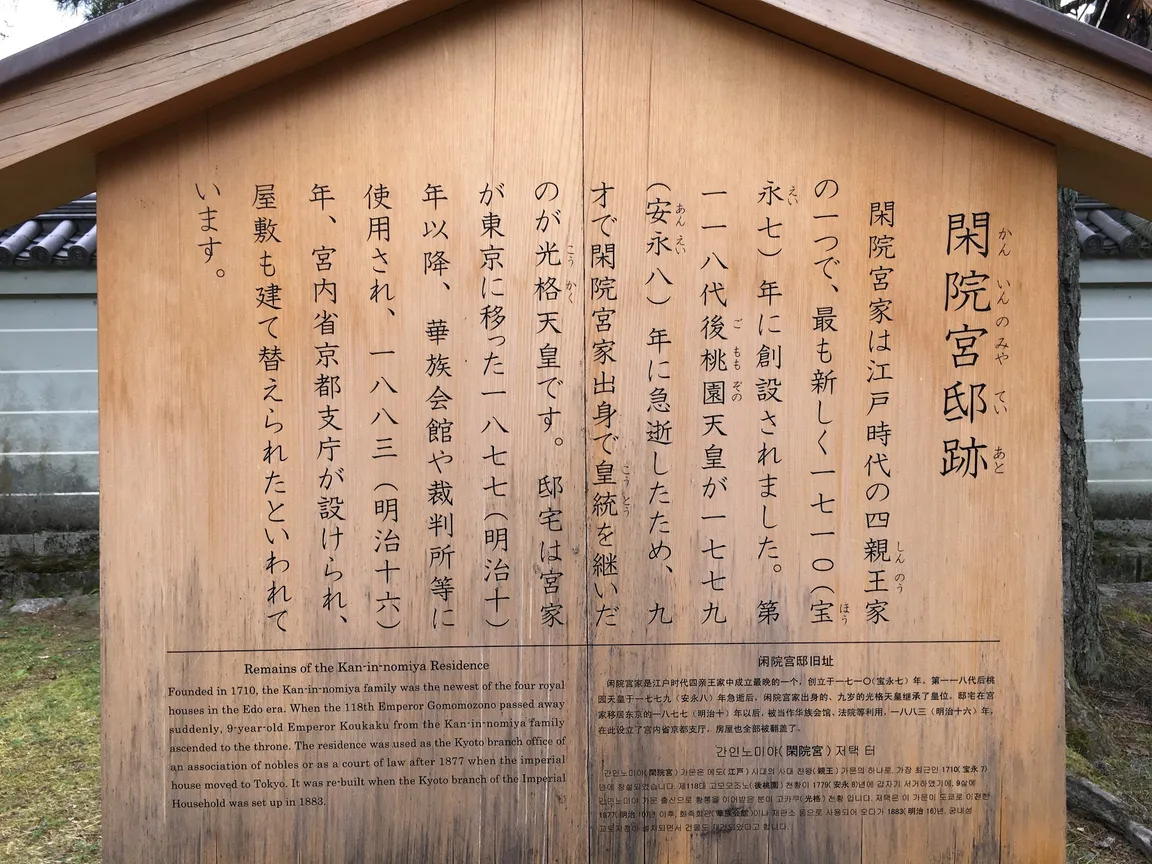 閑院宮邸跡
かん いん の みや てい あと
閑院宮家は江戸時代の四親王家
しん のう
の一つで、最も新しく一七一〇（宝
ほう
永七）年に創設されました。第
えい
一一八代後桃園天皇が一七七九
ご もも ぞの
（安永八）年に急逝したため、九
あん えい
才で閑院宮家出身で皇統を継いだ
こう とう
のが光格天皇です。邸宅は宮家
こう かく
が東京に移った一八七七（明治十）
年以降、華族会館や裁判所等に
使用され、一八八三（明治十六）
年、宮内省京都支庁が設けられ、
屋敷も建て替えられたといわれて
います。
Remains of the Kan-in-nomiya Residence
Founded in 1710, the Kan-in-nomiya family was the newest of the four royal
houses in the Edo era. When the 118th Emperor Gomomozono passed away
suddenly, 9-year-old Emperor Koukaku from the Kan-in-nomiya family
ascended to the throne. The residence was used as the Kyoto branch office of
an association of nobles or as a court of law after 1877 when the imperial
house moved to Tokyo. It was re-built when the Kyoto branch of the Imperial
Household was set up in 1883.
闲院宫邸旧址
闲院宫家是江户时代四亲王家中成立最晚的一个，创立于一七一〇（宝永七）年。第一一八代后桃
园天皇于一七七九（安永八）年急逝后，闲院宫家出身的、九岁的光格天皇继承了皇位。邸宅在宫
家移居东京的一八七七（明治十）年以后，被当作华族会馆、法院等利用，一八八三（明治十六）年，
在此设立了宫内省京都支厅，房屋也全部被翻盖了。
간인노미야(閑院宮) 저택 터
간인노미야(閑院宮) 가문은 에도(江戸) 시대의 사대 친왕(親王) 가문의 하나로, 가장 최근인 1710(宝永 7)
년에 창설되었습니다. 제118대 고모모조노(後桃園) 천황이 1779(安永 8)년에 갑자기 서거하였기에, 9살에
간인노미야 가문 출신으로 황통을 이어받은 분이 고카쿠(光格) 천황 입니다. 저택은 이 가문이 도쿄로 이전한
1877(明治 10)년 이후, 화족회관(華族会館)이나 재판소 등으로 사용되어 오다가 1883(明治 16)년, 궁내성
교토지청이 설치되면서 건물도 재건되었다고 합니다.